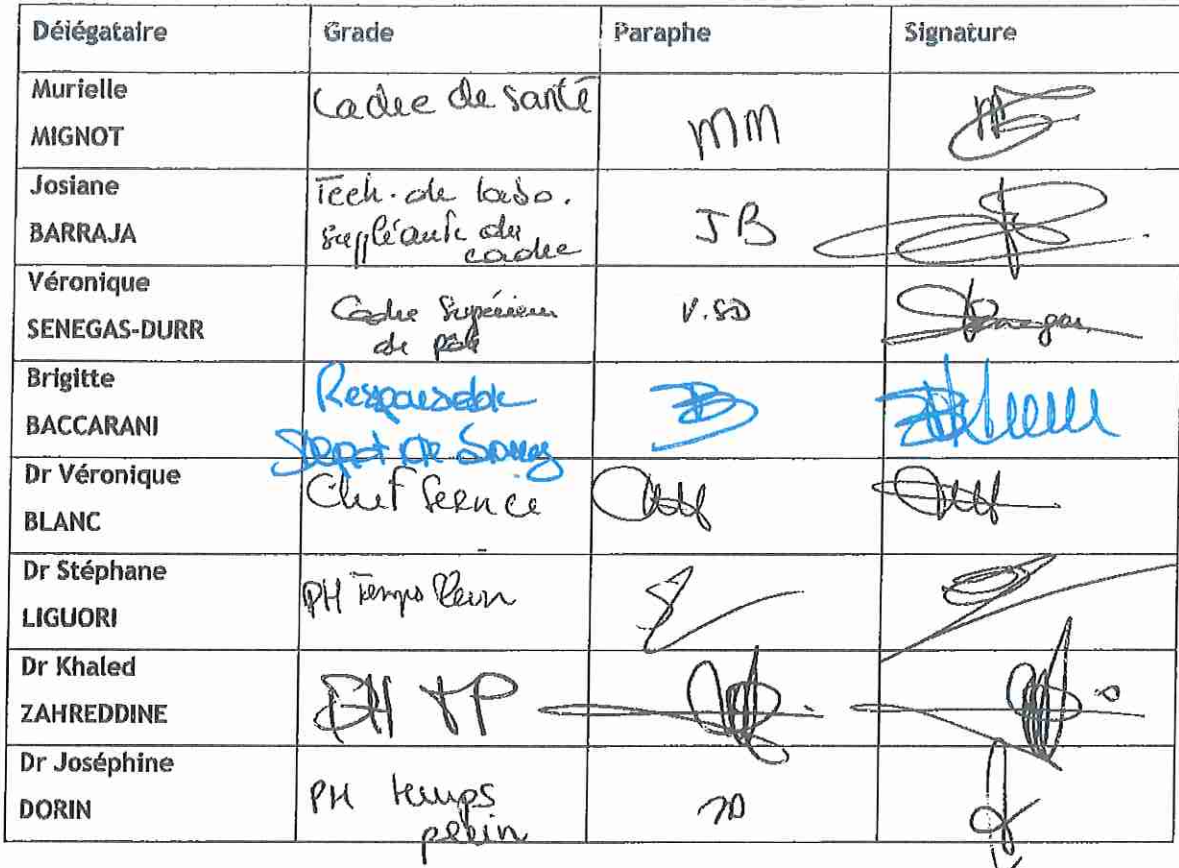 Délégataire Grade Paraphe Signature
Murielle
MIGNOT
Cadre de santé
MM
Josiane
BARRAJA
Tech. de labo.
suppléante du
cadre
JB
Véronique
SENEGAS-DURR
Cadre Supérieur
de pôle
V.SD
Senegas
Brigitte
BACCARANI
Responsable
Depot de Sang
BB
Dr Véronique
BLANC
Chef Service
Dr Stéphane
LIGUORI
PH Temps Plein
Dr Khaled
ZAHREDDINE
PH TP
Dr Joséphine
DORIN
PH temps
plein
JD